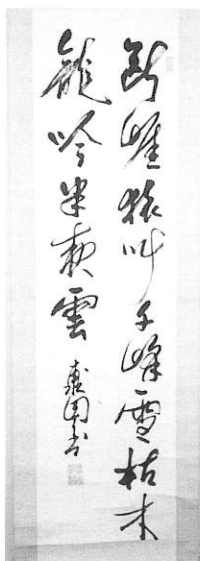 断崖猿叫千峰雪枯木
龍吟半夜雲
書